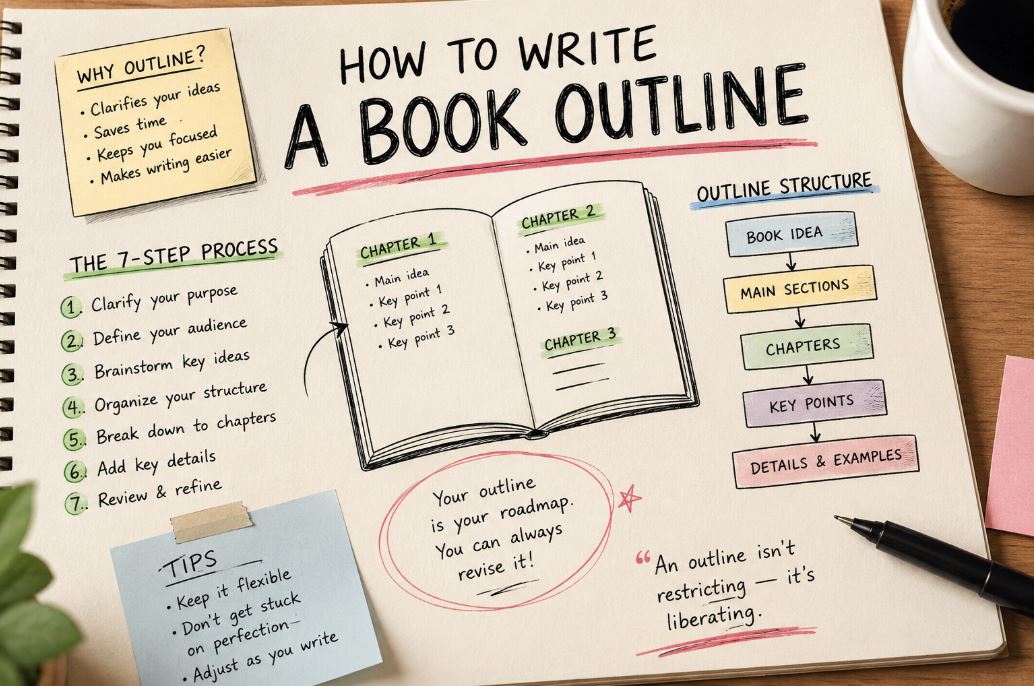 HOW TO WRITE
A BOOK OUTLINE
WHY OUTLINE?
• Clarifies your ideas
• Saves time
• Keeps you focused
• Makes writing easier
THE 7-STEP PROCESS
1. Clarify your purpose
2. Define your audience
3. Brainstorm key ideas
4. Organize your structure
5. Break down to chapters
6. Add key details
7. Review & refine
CHAPTER 1
• Main idea
• Key point 1
• Key point 2
• Key point 3
CHAPTER 2
• Main idea
• Key point 1
• Key point 2
• Key point 3
CHAPTER 3
OUTLINE STRUCTURE
BOOK IDEA
MAIN SECTIONS
CHAPTERS
KEY POINTS
DETAILS & EXAMPLES
TIPS
• Keep it flexible
• Don't get stuck
on perfection
• Adjust as you write
Your outline
is your roadmap.
You can always
revise it!
“An outline isn't
restricting — it's
liberating.